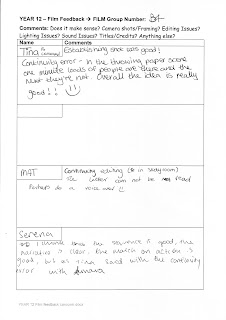 YEAR 12 – Film Feedback → FILM Group Number: 34
Comments: Does it make sense? Camera shots/Framing? Editing Issues?
Lighting Issues? Sound Issues? Titles/Credits? Anything else?
Name
Comments
Tina
Establishing shot was good!
Continuity error - in the throwing paper scene
one minute loads of people are there and the
next they're not. Overall the idea is really
good!!
MAT
Continuity editing (in studyroom)
The letter can not be read
Perhaps do a voice over
Serena
I think the sequence is good, the
narrative is clear. The match on action is
good, but as Tina said with the continuity
error with
YEAR 12 Film feedback